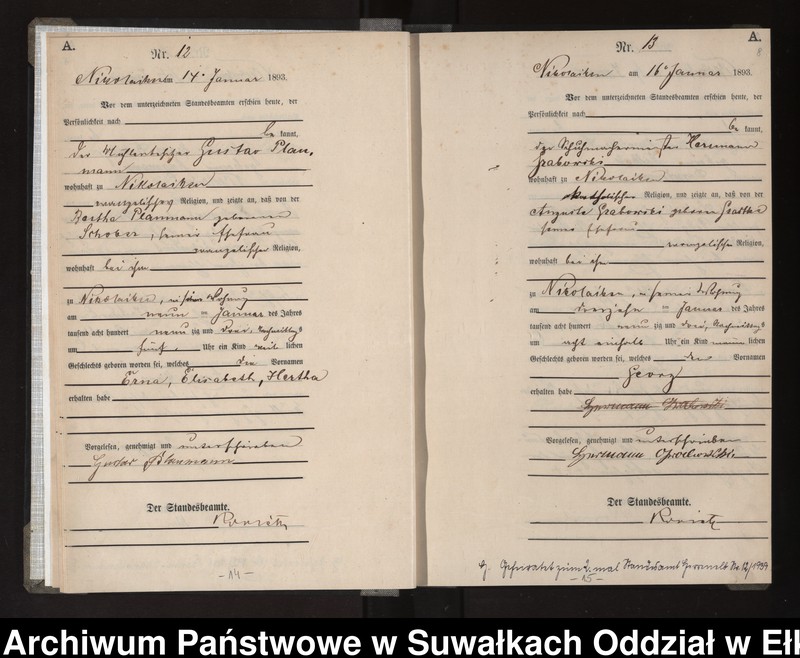 A.
Nr. 12
Nikolaiken am 14. Januar 1893.
Vor dem unterzeichneten Standesbeamten erschien heute, der
Persönlichkeit nach
be kannt,
der Mühlenbesitzer Gustav Plau,
mann
wohnhaft zu Nikolaiken
evangelischer Religion, und zeigte an, daß von der
Bertha Plaumann geborenen
Schober, seiner Ehefrau
evangelischer Religion,
wohnhaft bei ihm
zu Nikolaiken, in seiner Wohnung
am neun ten Januar des Jahres
tausend acht hundert neun zig und drei, Nachmittags
um fünf Uhr ein Kind weib lichen
Geschlechts geboren worden sei, welches die Vornamen
Erna, Elisabeth, Hertha
erhalten habe
Vorgelesen, genehmigt und unterschrieben
Gustav Plaumann
Der Standesbeamte.
- 14 -
A.
8
Nr. 13
Nikolaiken am 16. Januar 1893.
Vor dem unterzeichneten Standesbeamten erschien heute, der
Persönlichkeit nach
be kannt,
der Schuhmachermeister Hermann
Grabowski
wohnhaft zu Nikolaiken
Religion, und zeigte an, daß von der
Auguste Grabowski geboren
seiner Ehefrau
evangelischer Religion,
wohnhaft bei ihm
zu Nikolaiken, in seiner Wohnung
am dreizehn ten Januar des Jahres
tausend acht hundert neun zig und drei, Nachmittags
um acht einhalb Uhr ein Kind männ lichen
Geschlechts geboren worden sei, welches den Vornamen
Georg
erhalten habe
Hermann
Vorgelesen, genehmigt und unterschrieben
Hermann Grabowski
Der Standesbeamte.
Geheiratet zum 2. mal Standesamt Nr. 12/1939
- 15 -
Archiwum Państwowe w Suwałkach Oddział w Ełk